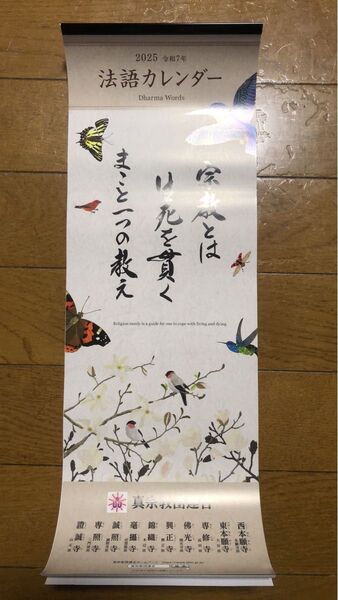 2025 令和7年
法語カレンダー
Dharma Words
宗教とは
生死を貫く
まこと一つの教え
Religion surely is a guide for one to cope with living and dying.
真宗教団連合
西本願寺
東本願寺
専修寺
佛光寺
興正寺
錦織寺
毫攝寺
誠照寺
専照寺
證誠寺